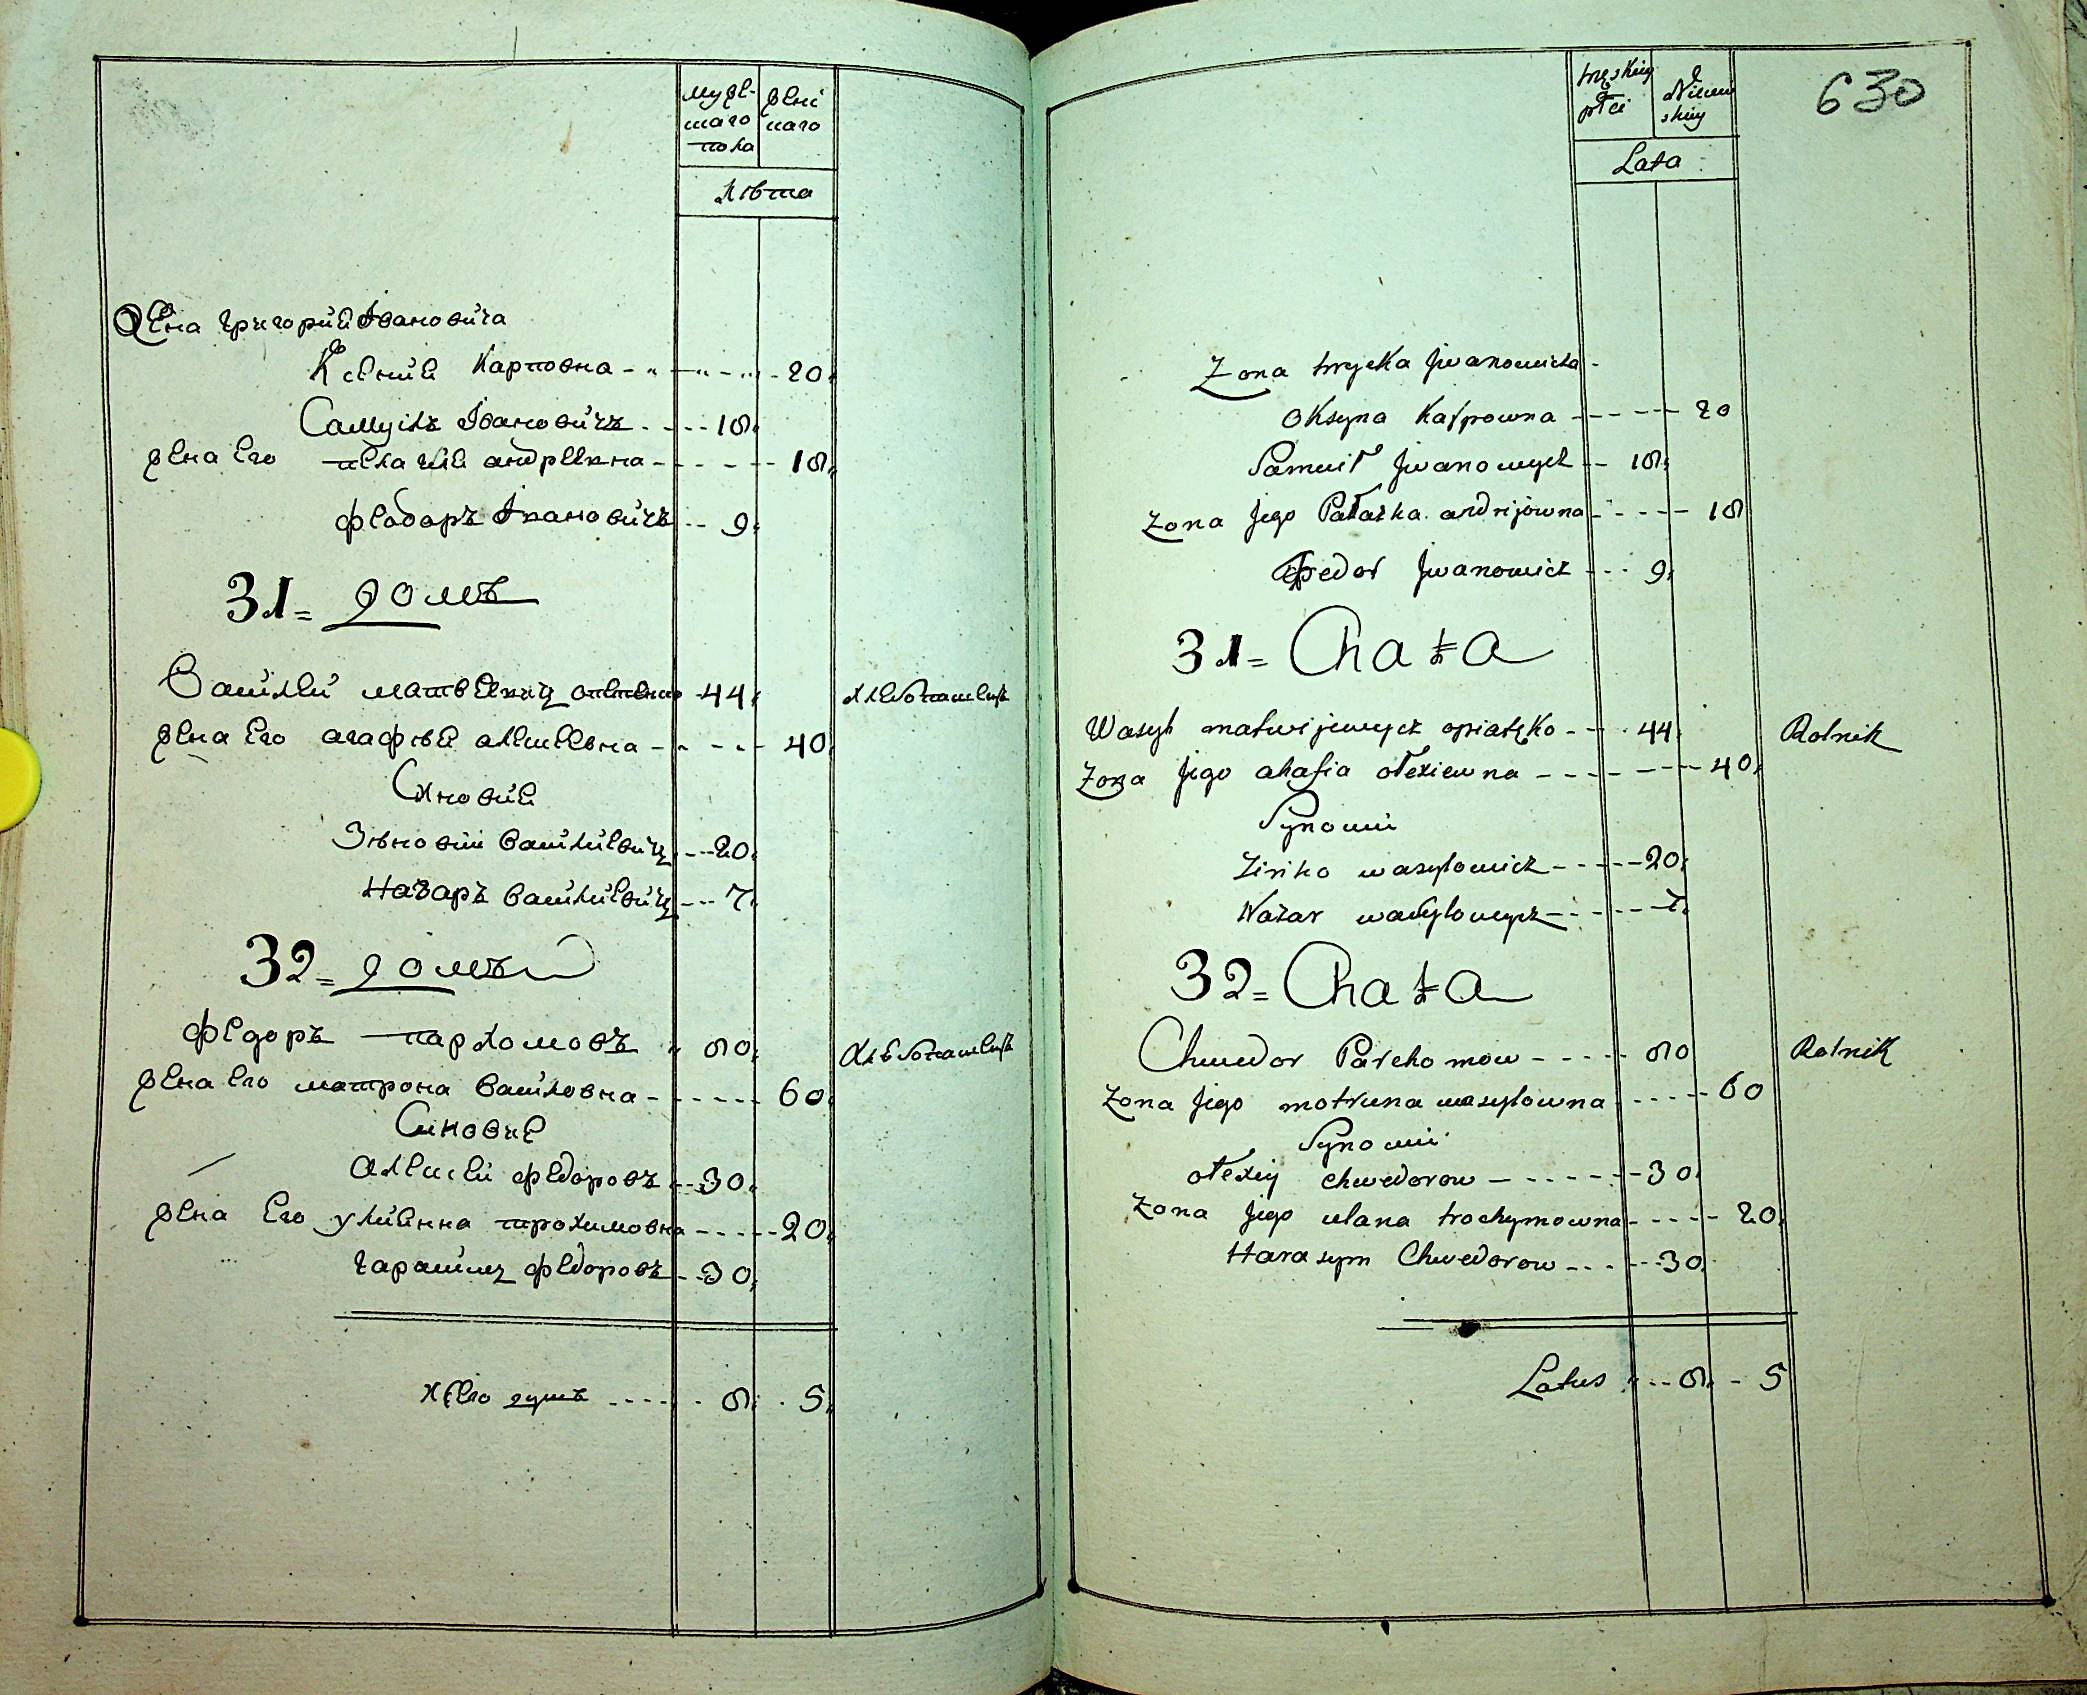 муже-
шаго
пола
женс
наго
лѣта
Жена григорий Івановича
Ксения Карповна - - - - 20
Самуилъ Івановичъ - - - 18
жена Его пелагия андреевна - - - - 18
федоръ Івановичъ - - 9
31 = домъ
Василей матвеевич - 44 хлебопашецъ
жена Его агафия алексеевна - - - - 40
Сыновия
Зѣновий василиевич - - 20
Назаръ василиевич - - 7
32 = домъ
федоръ пархомовъ 80 хлебопашецъ
жена Его матрона василовна - - - - - 60
Синовие
Алексей федоровъ - - 30
жена Его улиянна трохимовна - - - - - 20
гарасимъ федоровъ - - 30
душъ - - - - 8 5
630
męskiey
płci
Niewie
skiey
Lata
Zona hryćka Jwanowicza
oksyna karpowna - - - - 20
Samuił Jwanowycz - - 18
Zona Jego Pałażka andrijowna - - - - 18
Fedor Jwanowicz - - - 9
31 = Chata
Wasyl matwijewycz opiatęko - - - 44 Rolnik
Zona Jego ahafia ołexiewna - - - - - - 40
Synowie
Zinko wasylowicz - - - - - 20
Nazar wasylowycz - - - - 7
32 = Chata
Chwedor Parchomow - - - - - 80 Rolnik
Zona Jego motruna wasylowna - - - - - 60
Synowie
ołexiy chwedorow - - - - - - 30
Zona Jego ulana trochymowna - - - - 20
Harasym Chwedorow - - - - - 30
Latus - - 8 - 5